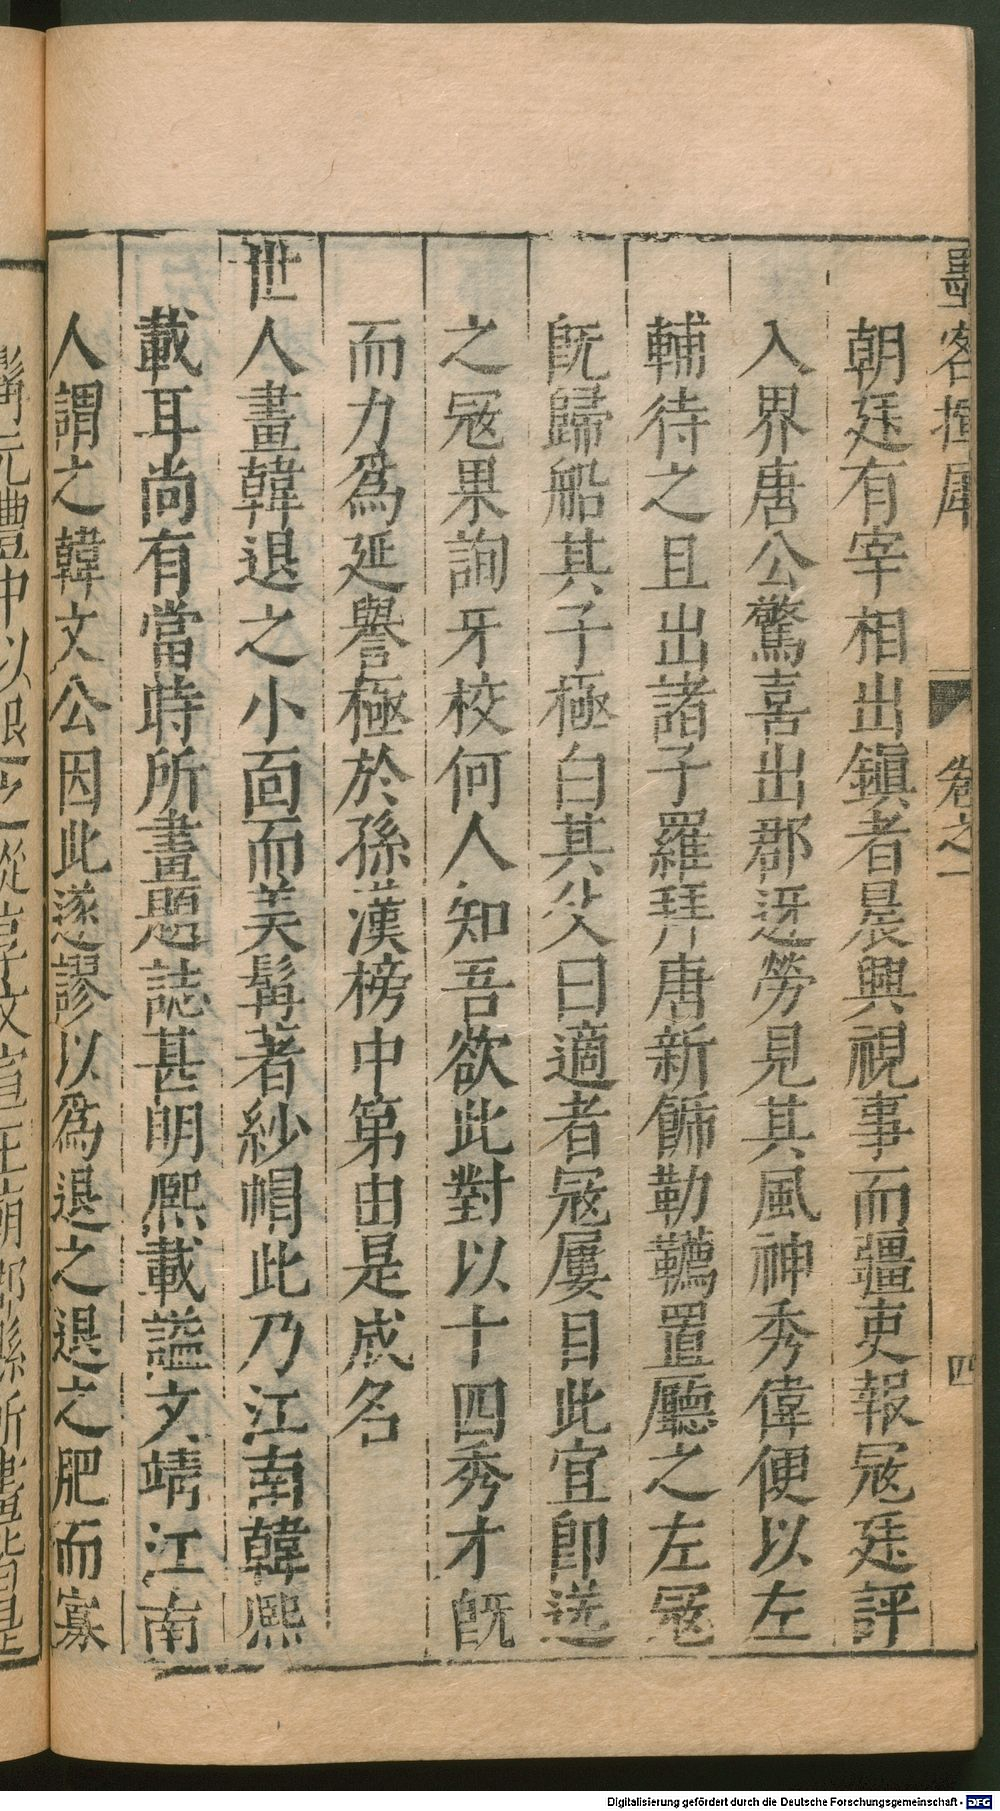 墨客揮犀 卷之一 四
朝廷有宰相出鎮者晨興視事而疆吏報冦廷評
入界唐公驚喜出郡迓勞見其風神秀偉便以左
輔待之且出諸子羅拜唐新飾勒韉置廳之左冦
旣歸船其子極白其父曰適者冦屢目此宜卽送
之冦果詢牙校何人知吾欲此對以十四秀才旣
而力爲延譽極於孫漢榜中第由是成名
世人畫韓退之小靣而美髯著紗帽此乃江南韓熙
載耳尚有當時所畫題誌甚明熙載謚文靖江南
人謂之韓文公因此遂謬以爲退之退之肥而寡
髯元豐中以退之從享文宣王廟郡縣所畫皆是
Digitalisierung gefördert durch die Deutsche Forschungsgemeinschaft - DFG